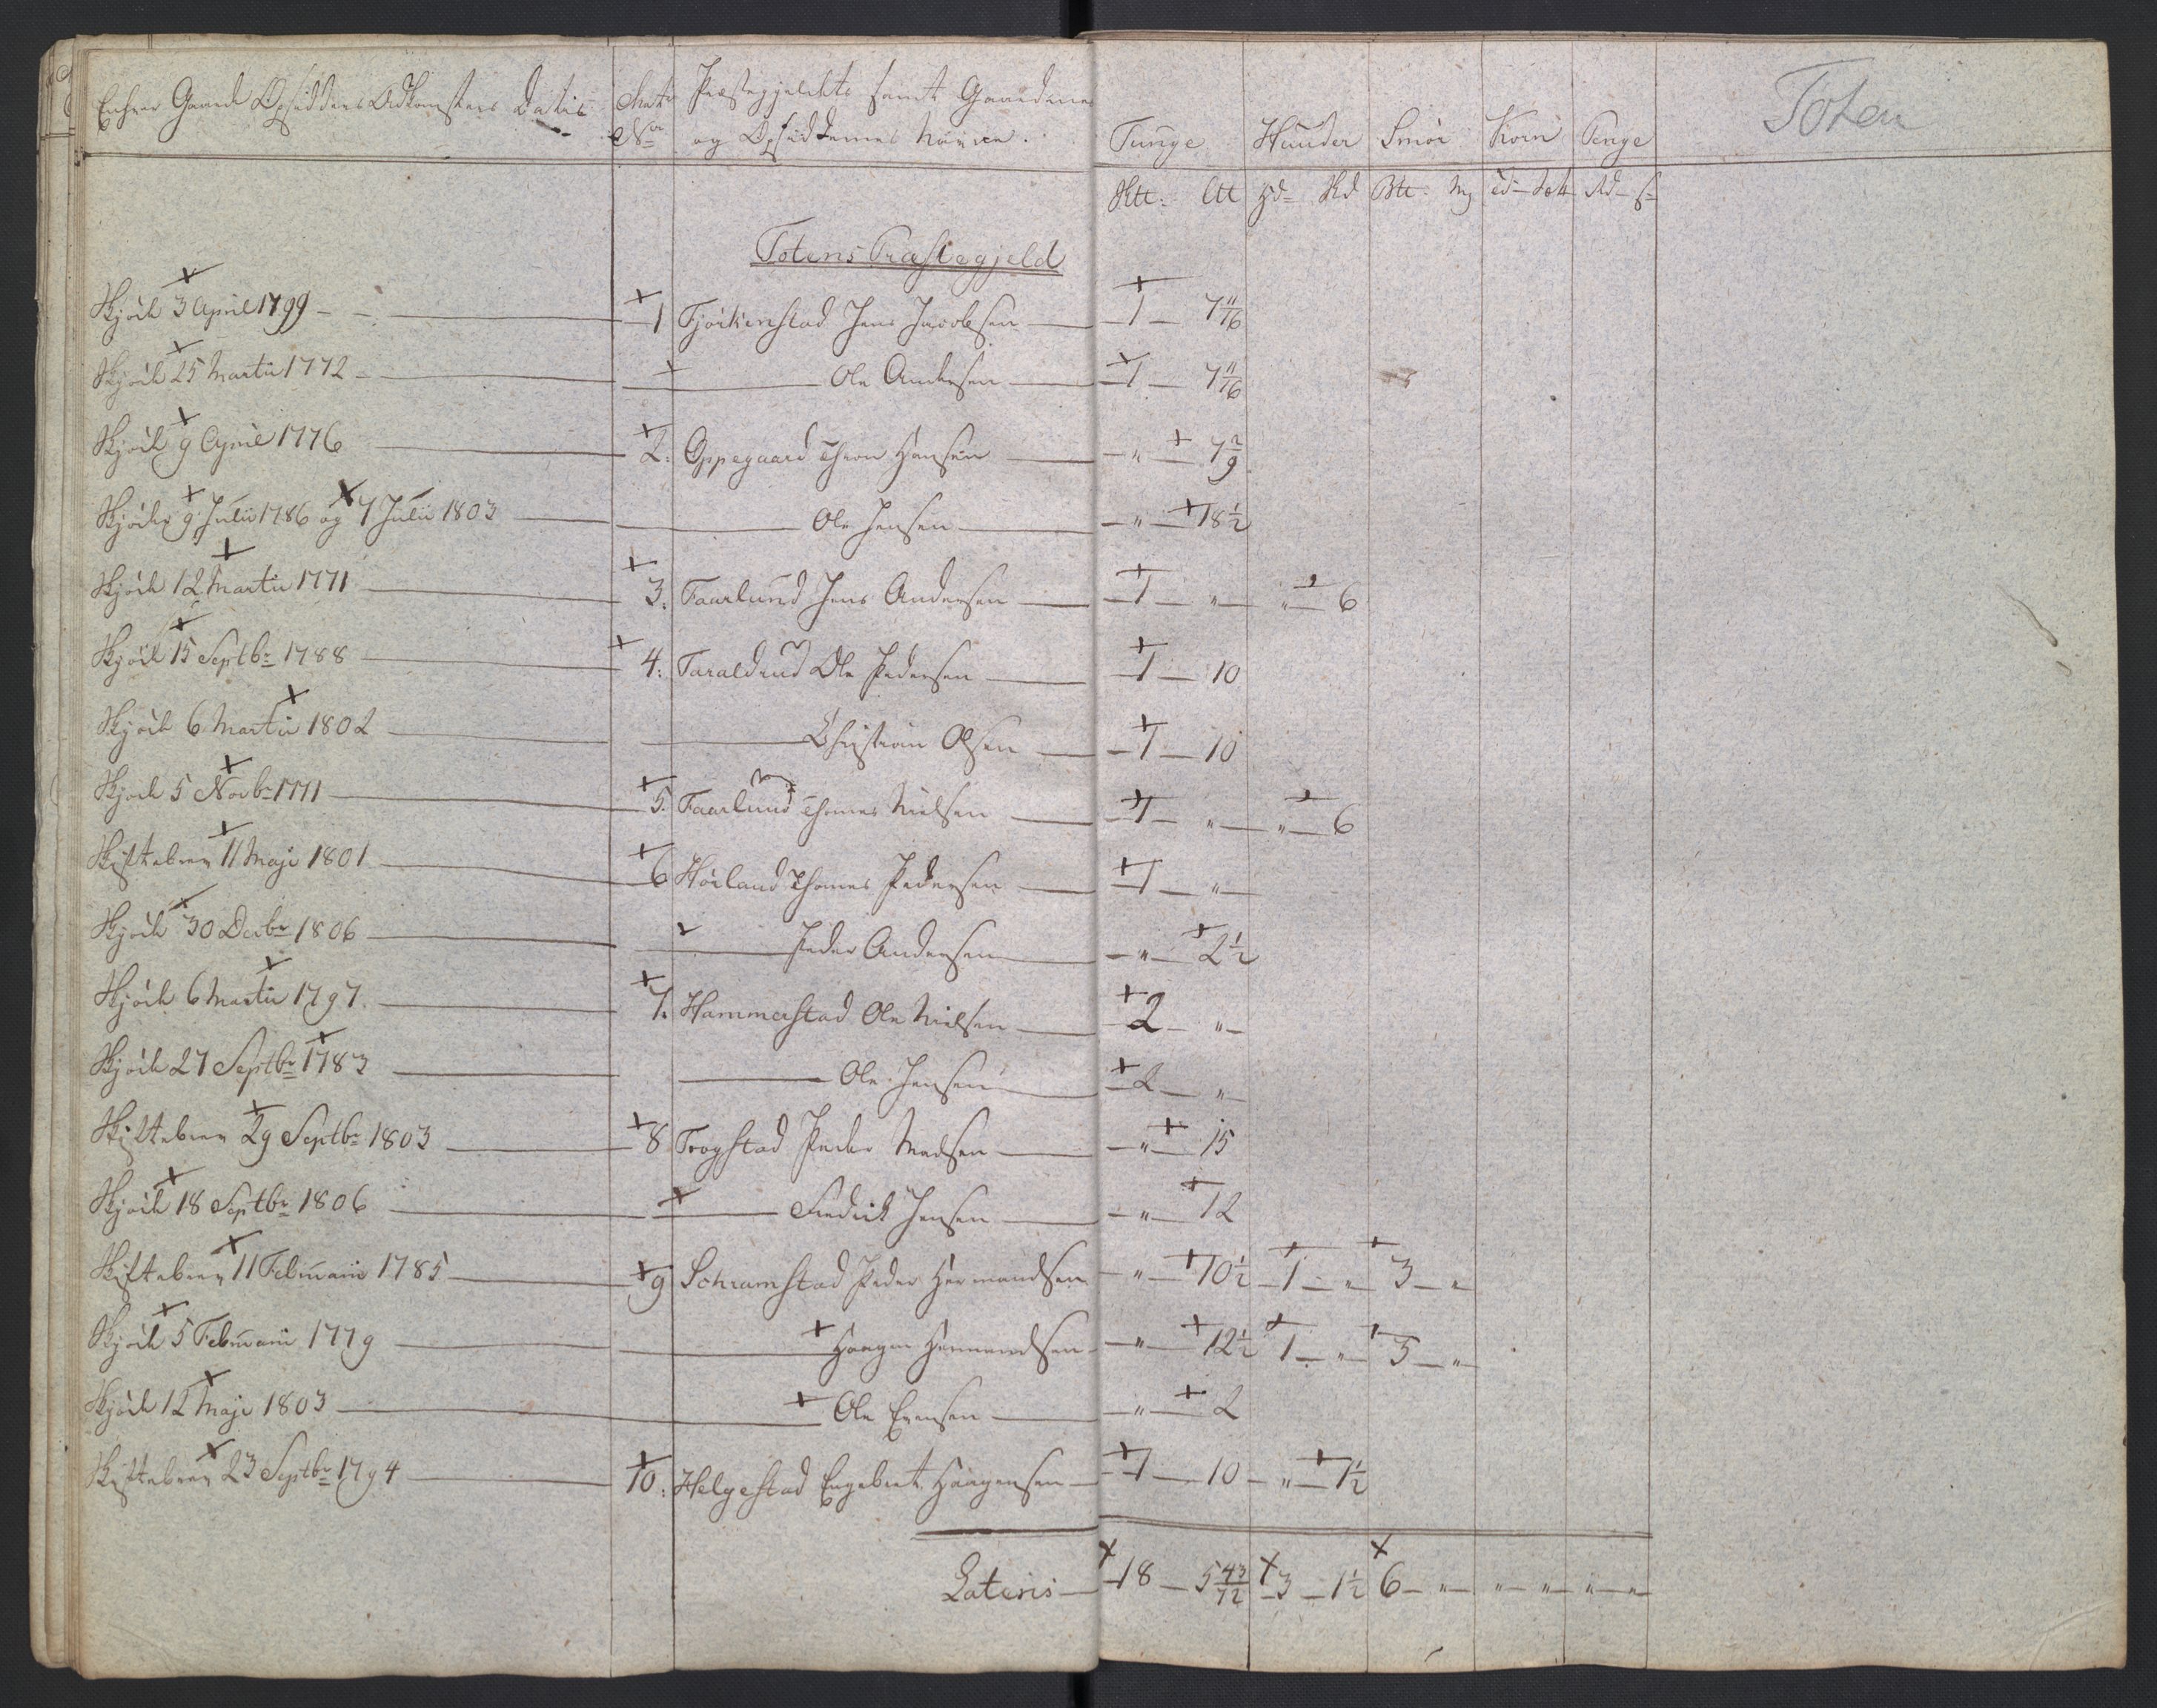 Enhver Gaard Opsidders Adkomsters Datis
Matr Præstegjeldets samt Gaardenes
No og Opsiddernes Navne.
Tunge Huuder Smör Korn Penge
Toten
Totens Præstegjeld
Skjöde 3 April 1799 1 Fjörkenstad Jens Jacobsen 1 7 11/16
Skjöde 25 Martii 1772 Ole Andersen 1 7 11/16
Skjöde 9 April 1776 2. Oppegaard Hansen " 7 2/9
Skjöder 9 Julii 1786 og 7 Julii 1803 Ole Jensen " 18 1/2
Skjöde 12 Martii 1771 3. Faarlund Jens Andersen 1 " " 6
Skjöde 15 Septbr 1788 4: Taraldrud Ole Pedersen 1 10
Skjöde 6 Martii 1802 Christian Olsen 1 10
Skjöde 5 Novbr 1771 5. Faarlund Thomes Nielsen 1 " " 6
Skiftebrev 11 Maji 1801 6 Hörland Thomes Pedersen 1 "
Skjöde 30 Decbr 1806 Peder Andersen " 2 1/2
Skjöde 6 Martii 1797. 7. Hammerstad Ole Nielsen 2 "
Skjöde 27 Septbr 1783 Ole Jensen 2 "
Skiftebrev 29 Septbr 1803 8 Trogstad Peder Madsen " 15
Skjöde 18 Septbr 1806 Fredrik Jensen " 12
Skiftebrev 11 Februarii 1785 9 Schramstad Peder Hermandsen " 10 1/2 1 " 3 "
Skjöde 5 Februarii 1779 Haagen Hermandsen " 12 1/2 1 " 3 "
Skjöde 12 Maji 1803 Ole Evensen " 2
Skiftebrev 23 Septbr 1794 10: Helgestad Engebret Haagensen 1 10 " 1 1/2
Lateris 18 5 43/72 3 1 1/2 6 " " " " "